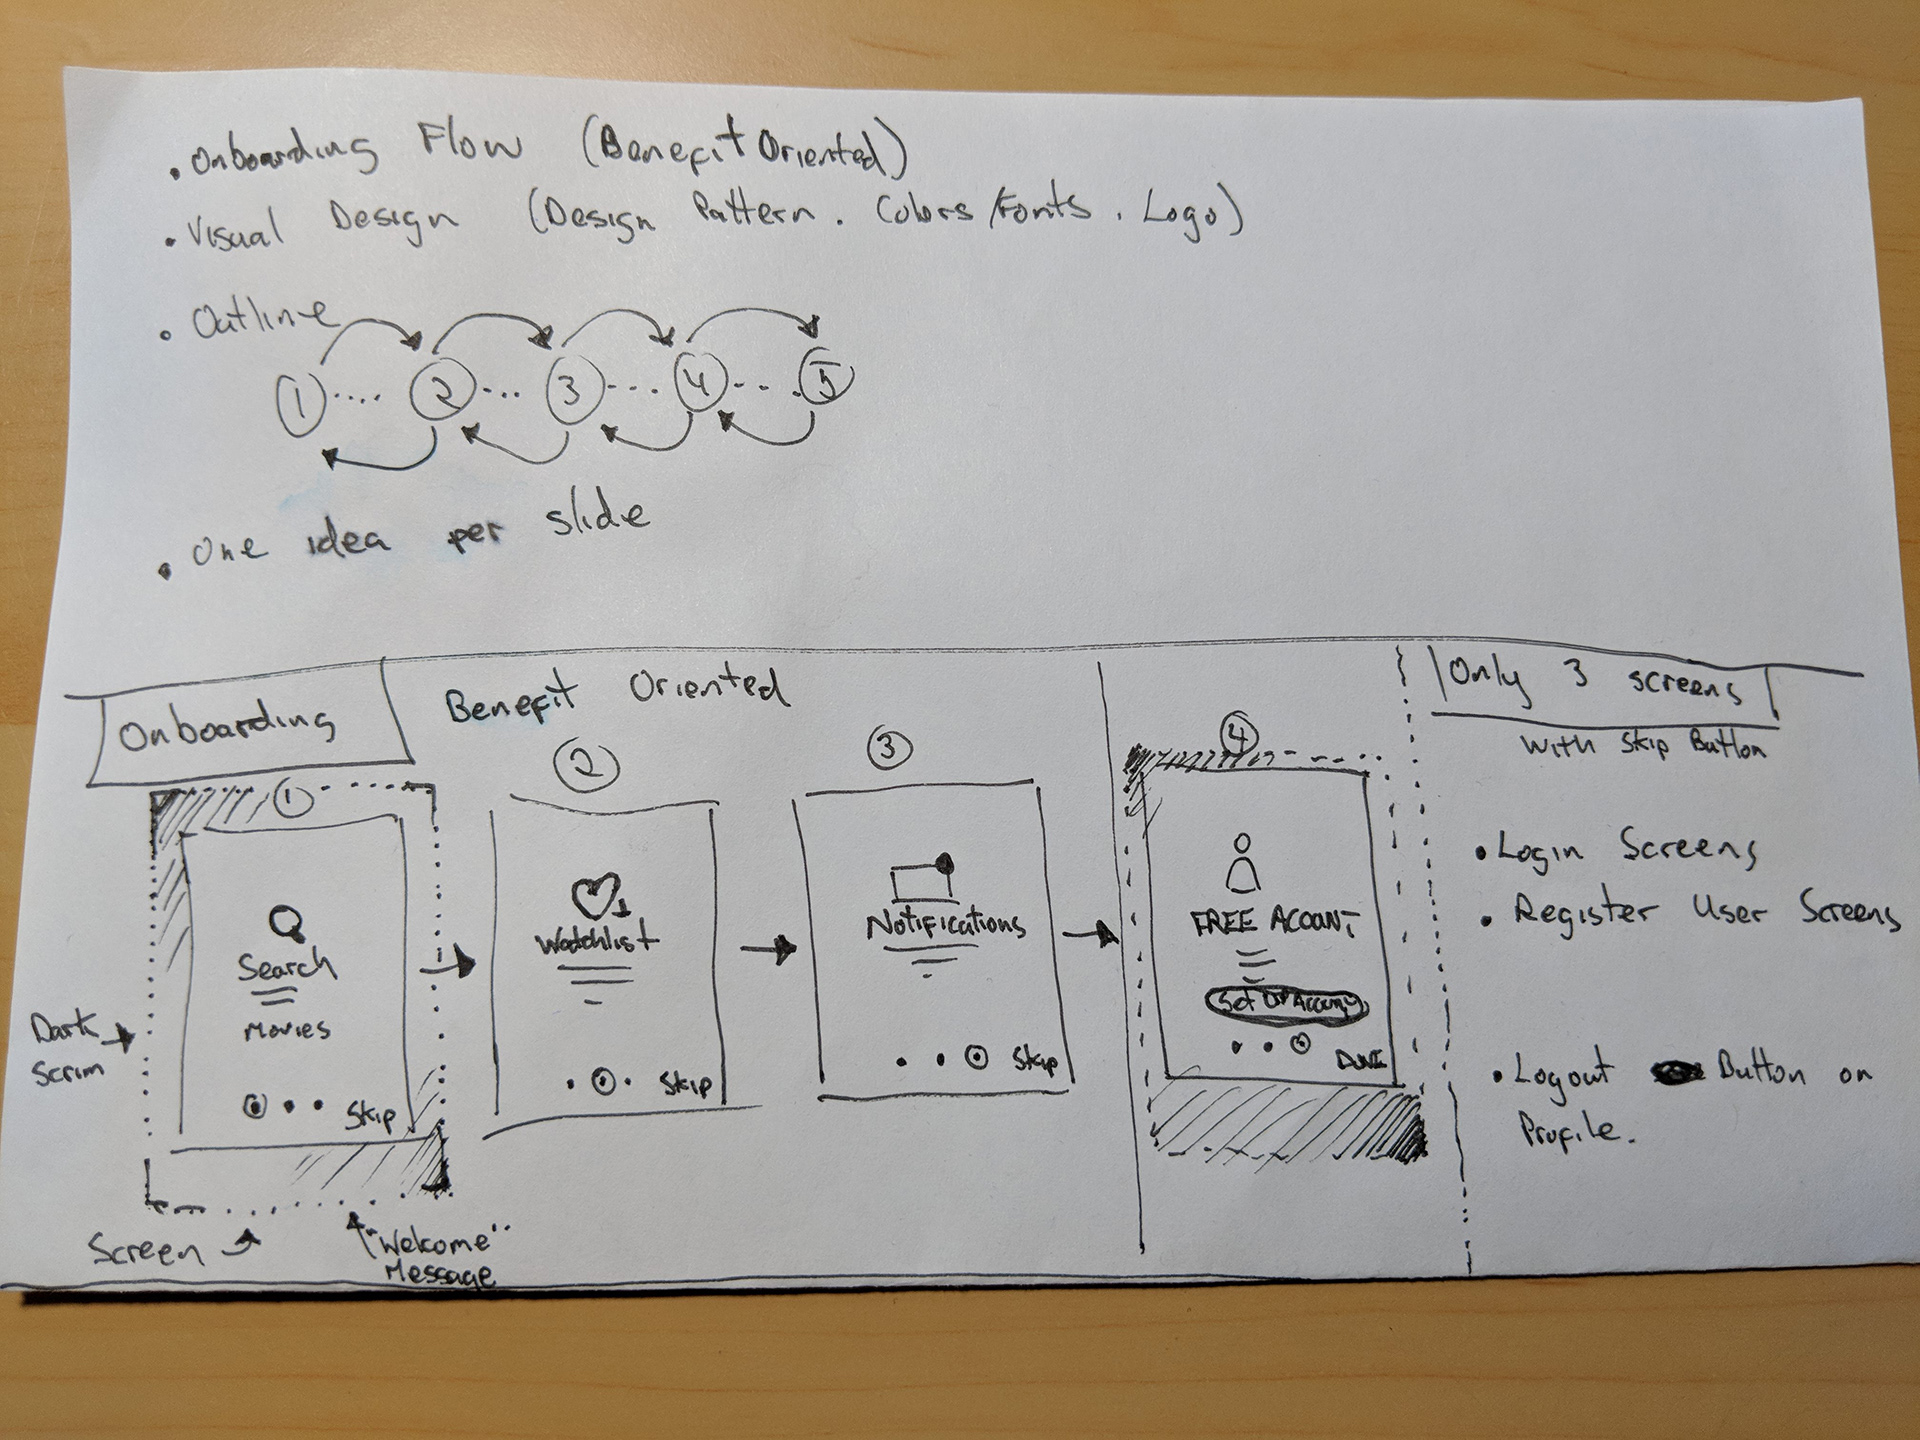 • Onboarding Flow (Benefit Oriented)
• Visual Design (Design Pattern. Colors/Fonts. Logo)
• Outline
1 .... 2 ... 3 ... 4 ... 5
• One idea per slide
Onboarding
Benefit Oriented
Only 3 screens
with Skip Button
1
Search
Movies
Skip
Dark
Scrim
Screen
"Welcome"
Message
2
Watchlist
Skip
3
Notifications
Skip
4
FREE ACOUNT
Set Up Account
DONE
• Login Screens
• Register User Screens
• Logout Button on
Profile.